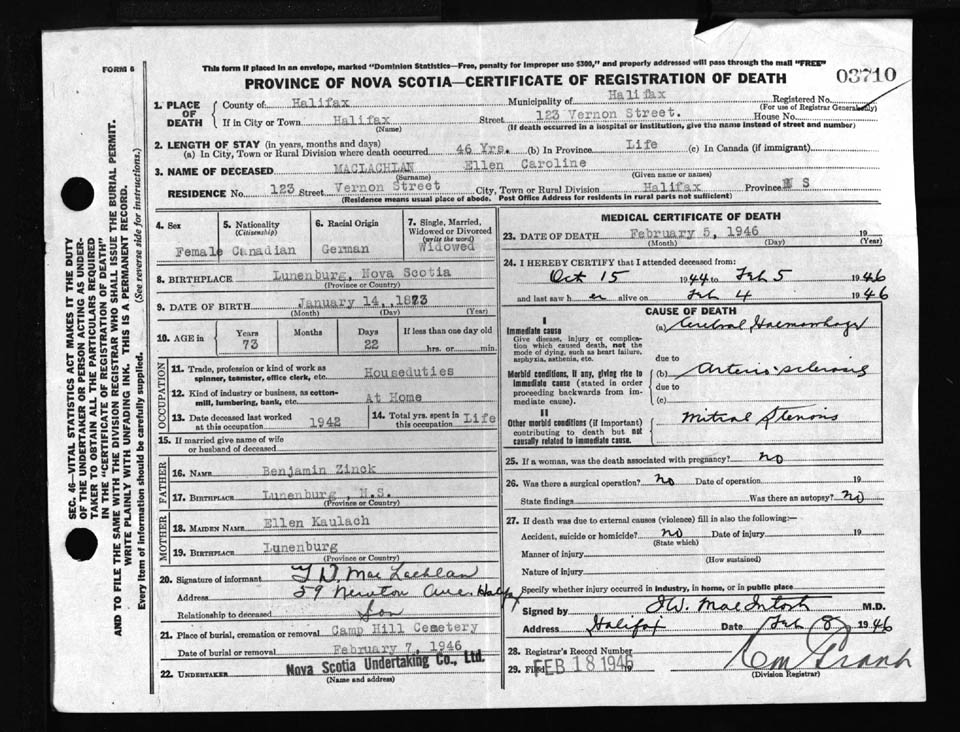 FORM 6
This form if placed in an envelope, marked "Dominion Statistics—Free, penalty for improper use $300," and properly addressed will pass through the mail "FREE"
PROVINCE OF NOVA SCOTIA—CERTIFICATE OF REGISTRATION OF DEATH
03710
1. PLACE OF DEATH
County of Halifax Municipality of Halifax Registered No.
(For use of Registrar Generalonly)
If in City or Town Halifax Street 123 Vernon Street. House No.
(Name) (If death occurred in a hospital or institution, give the name instead of street and number)
2. LENGTH OF STAY (in years, months and days)
(a) In City, Town or Rural Division where death occurred 46 Yrs. (b) In Province Life (c) In Canada (if immigrant)
3. NAME OF DECEASED MACLACHLAN Ellen Caroline
(Surname) (Given name or names)
RESIDENCE No. 123 Street Vernon Street City, Town or Rural Division Halifax Province N S
(Residence means usual place of abode. Post Office Address for residents in rural parts not sufficient)
4. Sex
Female
5. Nationality
(Citizenship)
Canadian
6. Racial Origin
German
7. Single, Married,
Widowed or Divorced
(write the word)
Widowed
8. BIRTHPLACE Lunenburg, Nova Scotia
(Province or Country)
9. DATE OF BIRTH January 14, 1873
(Month) (Day) (Year)
10. AGE in
Years Months Days If less than one day old
73 22 hrs. or min.
OCCUPATION
11. Trade, profession or kind of work as
spinner, teamster, office clerk, etc. Houseduties
12. Kind of industry or business, as cotton-
mill, lumbering, bank, etc. At Home
13. Date deceased last worked
at this occupation 1942
14. Total yrs. spent in
this occupation Life
15. If married give name of wife
or husband of deceased
FATHER
16. NAME Benjamin Zinck
17. BIRTHPLACE Lunenburg, N.S.
(Province or Country)
MOTHER
18. MAIDEN NAME Ellen Kaulach
19. BIRTHPLACE Lunenburg
(Province or Country)
20. Signature of informant Mac Lachlan
Address 59 Newton Ave. Halifx
Relationship to deceased Son
21. Place of burial, cremation or removal Camp Hill Cemetery
Date of burial or removal February 7, 1946
22. UNDERTAKER Nova Scotia Undertaking Co., Ltd.
(Name and address)
MEDICAL CERTIFICATE OF DEATH
23. DATE OF DEATH February 5, 1946 19
(Month) (Day) (Year)
24. I HEREBY CERTIFY that I attended deceased from:
Oct 15 1944 to Feb 5 1946
and last saw h er alive on Feb 4 1946
CAUSE OF DEATH
I
Immediate cause
Give disease, injury or complica-
tion which caused death, not the
mode of dying, such as heart failure,
asphyxia, asthenia, etc.
(a) Cerebral Haemorrhage
due to
Morbid conditions, if any, giving rise to
immediate cause (stated in order
proceeding backwards from im-
mediate cause).
(b) Arterio-sclerosis
due to
(c)
II
Other morbid conditions (if important)
contributing to death but not
causally related to immediate cause.
Mitral Stenosis
25. If a woman, was the death associated with pregnancy? no
26. Was there a surgical operation? no Date of operation 19
State findings Was there an autopsy? no
27. If death was due to external causes (violence) fill in also the following:—
Accident, suicide or homicide? no Date of injury 19
(State which)
Manner of injury
(How sustained)
Nature of injury
Specify whether injury occurred in industry, in home, or in public place
Signed by MacIntosh M.D.
Address Halifax Date Feb 8 1946
28. Registrar's Record Number
29. Filed FEB 18 1946 19
(Division Registrar)
SEC. 46—VITAL STATISTICS ACT MAKES IT THE DUTY
OF THE UNDERTAKER OR PERSON ACTING AS UNDER-
TAKER TO OBTAIN ALL THE PARTICULARS REQUIRED
IN THE "CERTIFICATE OF REGISTRATION OF DEATH"
AND TO FILE THE SAME WITH THE DIVISION REGISTRAR WHO SHALL ISSUE THE BURIAL PERMIT.
WRITE PLAINLY WITH UNFADING INK. THIS IS A PERMANENT RECORD.
Every item of information should be carefully supplied. (See reverse side for instructions.)